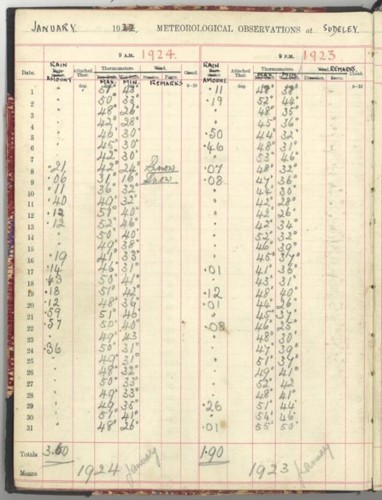 JANUARY 19 METEOROLOGICAL OBSERVATIONS at SUDELEY.
9 A.M. 1924. 9 A.M. 1923
RAIN Thermometers Wind. RAIN Thermometers Wind. REMARKS.
Date. AMOUNT Attached Ther. MAX. MIN. REMARKS Cloud. AMOUNT Attached Ther. MAX MIN Cloud.
1 " 51° 43° .11 49° 38°
2 " 50° 33° .19 52° 44°
3 " 48° 26° " 48° 35°
4 " 42° 28° " 45° 36°
5 " 46° 30° .50 44° 32°
6 " 45° 30° .46 48° 31°
7 " 42° 30° " 53° 46°
8 .21 42° 24° Snow .07 48° 32°
9 .06 31° 16° Snow .08 47° 36°
10 .11 36° 32° " 44° 30°
11 .40 49° 32° " 42° 28°
12 .12 51° 40° " 42° 26°
13 .12 52° 46° " 42° 34°
14 " 50° 40° " 52° 32°
15 " 49° 38° " 46° 39°
16 .19 41° 33° " 45° 37°
17 .14 46° 31° .01 41° 35°
18 .43 50° 41° " 43° 31°
19 .18 51° 42° " 48° 40°
20 .12 48° 39° .12 48° 30°
21 .59 51° 46° .01 44° 26°
22 .57 50° 40° " 45° 37°
23 " 49° 43 .08 46° 25°
24 .36 50° 31° " 48° 30°
25 " 49° 31° " 47° 39°
26 " 48° 32° " 51° 37°
27 " 50° 33° " 49° 41°
28 " 49° 33° " 52° 42
29 " 49° 36° " 48° 41°
30 " 51° 41° .26 51° 44°
31 " 48° 26° .01 55° 50°
Totals 3.60 1.90
Means 1924 January 1923 January